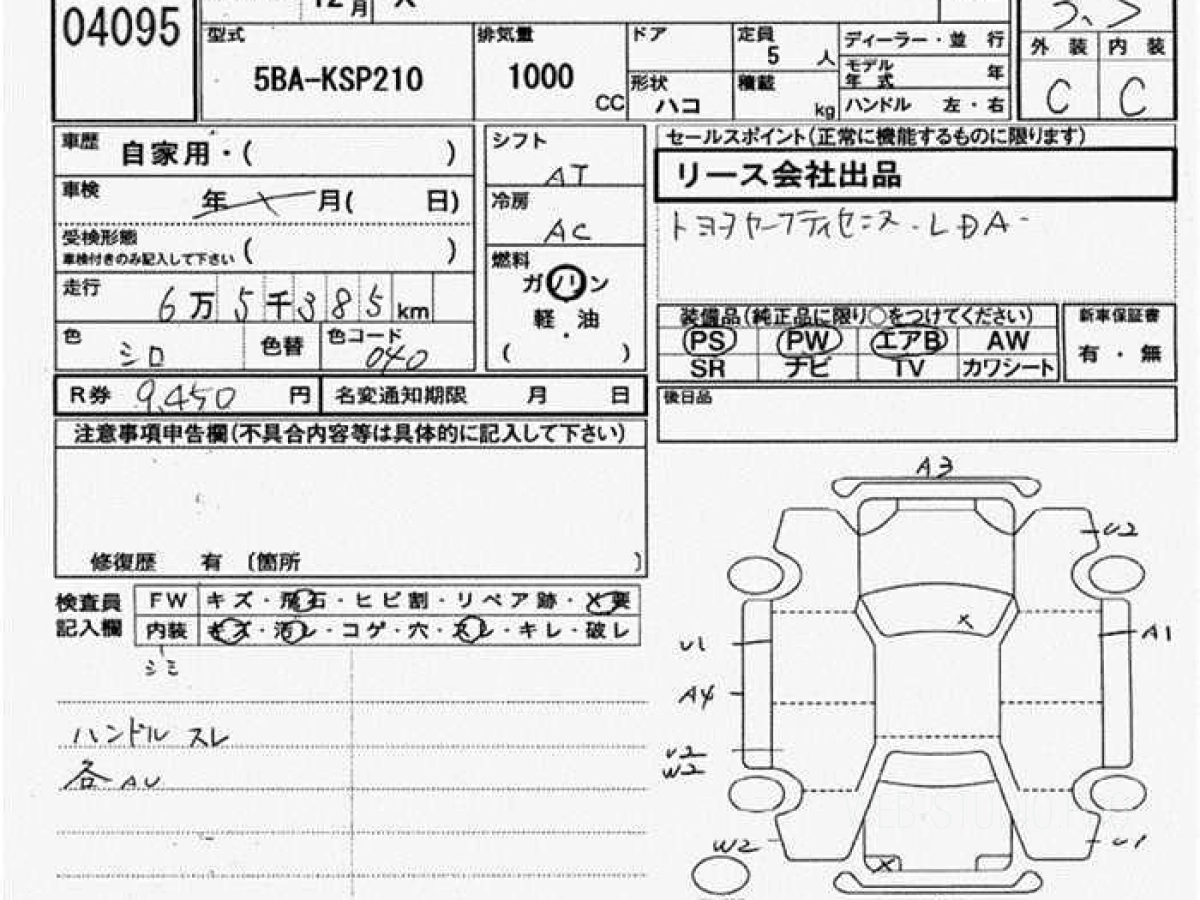 04095
12月 X
型式 5BA-KSP210
排気量 1000 CC
ドア
形状 ハコ
定員 5 人
積載 kg
ディーラー・並 行
モデル年式 年
ハンドル 左・右
外 装 内 装
C C
車歴 自家用・( )
車検 年 月( 日)
受検形態 車検付きのみ記入して下さい ( )
走行 6万5千385km
色 シロ 色替 色コード 040
シフト AT
冷房 AC
燃料 ガソリン
軽・油
( )
セールスポイント(正常に機能するものに限ります)
リース会社出品
トヨタセーフティセンス・LDA
装備品(純正品に限り○をつけてください)
PS PW エアB AW
SR ナビ TV カワシート
新車保証書
有・無
R券 9,450 円 名変通知期限 月 日
後日品
注意事項申告欄(不具合内容等は具体的に記入して下さい)
修復歴 有 〔箇所 〕
検査員記入欄
FW キズ・飛石・ヒビ割・リペア跡・X要
内装 キズ・汚レ・コゲ・穴・スレ・キレ・破レ
シミ
ハンドル スレ
各AU
A3
U2
X
U1
A1
A4
U2
W2
W2
U1
X